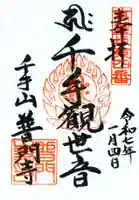 奉拝
千手観世音
千手山
普門寺
令和七年
月四日